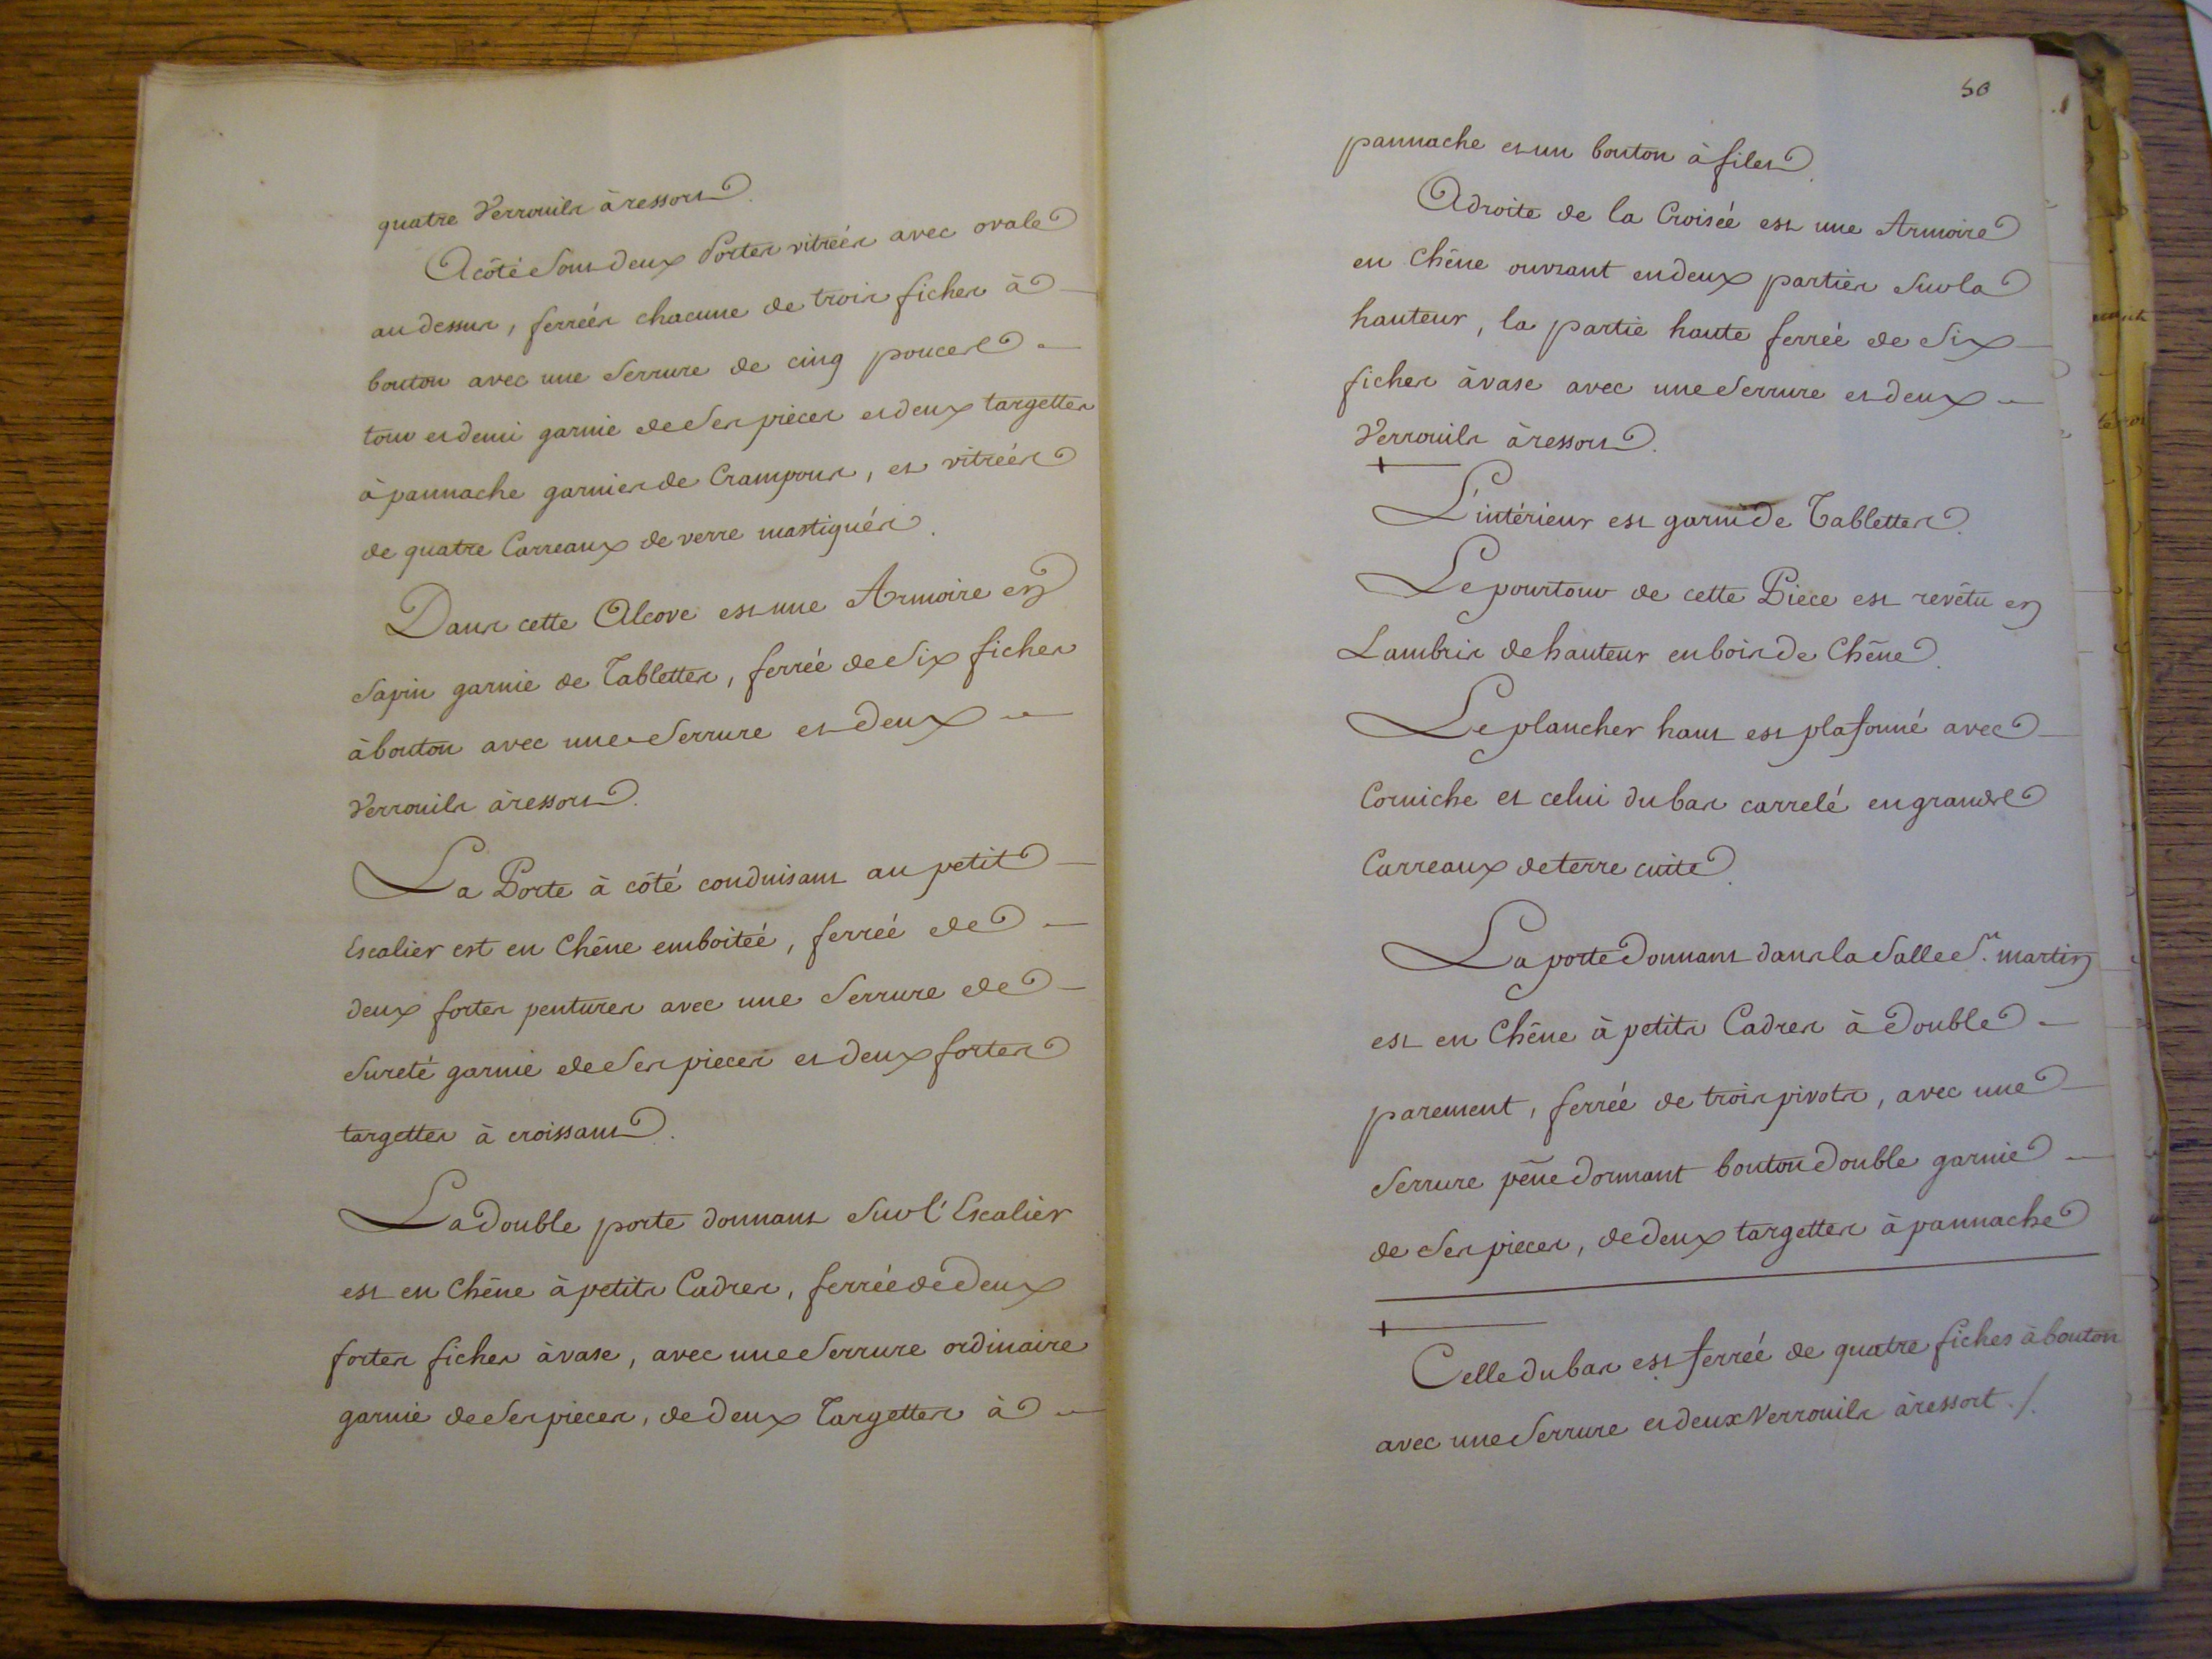 quatre Verrouils à ressort.
A côté sont deux Portes vitrées avec ovale
au dessus, ferrées chacune de trois fiches à
bouton avec une Serrure de cinq pouces
tour et demi garnie de Ses pieces et deux targettes
à pannache garnies de Crampons, et vitrées
de quatre Carreaux de verre mastiqués.
Dans cette Alcove est une Armoire en
Sapin garnie de Tablettes, ferrée de Six fiches
à bouton avec une Serrure et deux
Verrouils à ressort.
La Porte à côté conduisant au petit
Escalier est en Chêne emboiteé, ferreé de
deux fortes pentures avec une Serrure de
Sureté garnie de Ses pieces et deux fortes
targettes à croissant.
La double porte donnant Sur l'Escalier
est en Chêne à petits Cadres, ferrée de deux
fortes fiches à vase, avec une Serrure ordinaire
garnie de Ses pieces, de deux Targettes à
50
pannache et un bouton à filet.
A droite de la Croiseé est une Armoire
en Chêne ouvrant en deux parties Sur la
hauteur, la partie haute ferreé de Six
fiches à vase avec une Serrure et deux
Verrouils à ressort.
L'intérieur est garni de Tablettes.
Le pourtour de cette Piece est revêtu en
Lambris de hauteur en bois de Chêne.
Le plancher haut est plafonné avec
Corniche et celui du bas carrelé en grands
Carreaux de terre cuite.
La porte donnant dans la Salle St. martin
est en Chêne à petits Cadres à double
parement, ferreé de trois pivots, avec une
Serrure pêne dormant bouton double garnie
de Ses pieces, de deux targettes à pannache
Celle du bas est ferreé de quatre fiches à bouton
avec une Serrure et deux Verrouils à ressort ./.